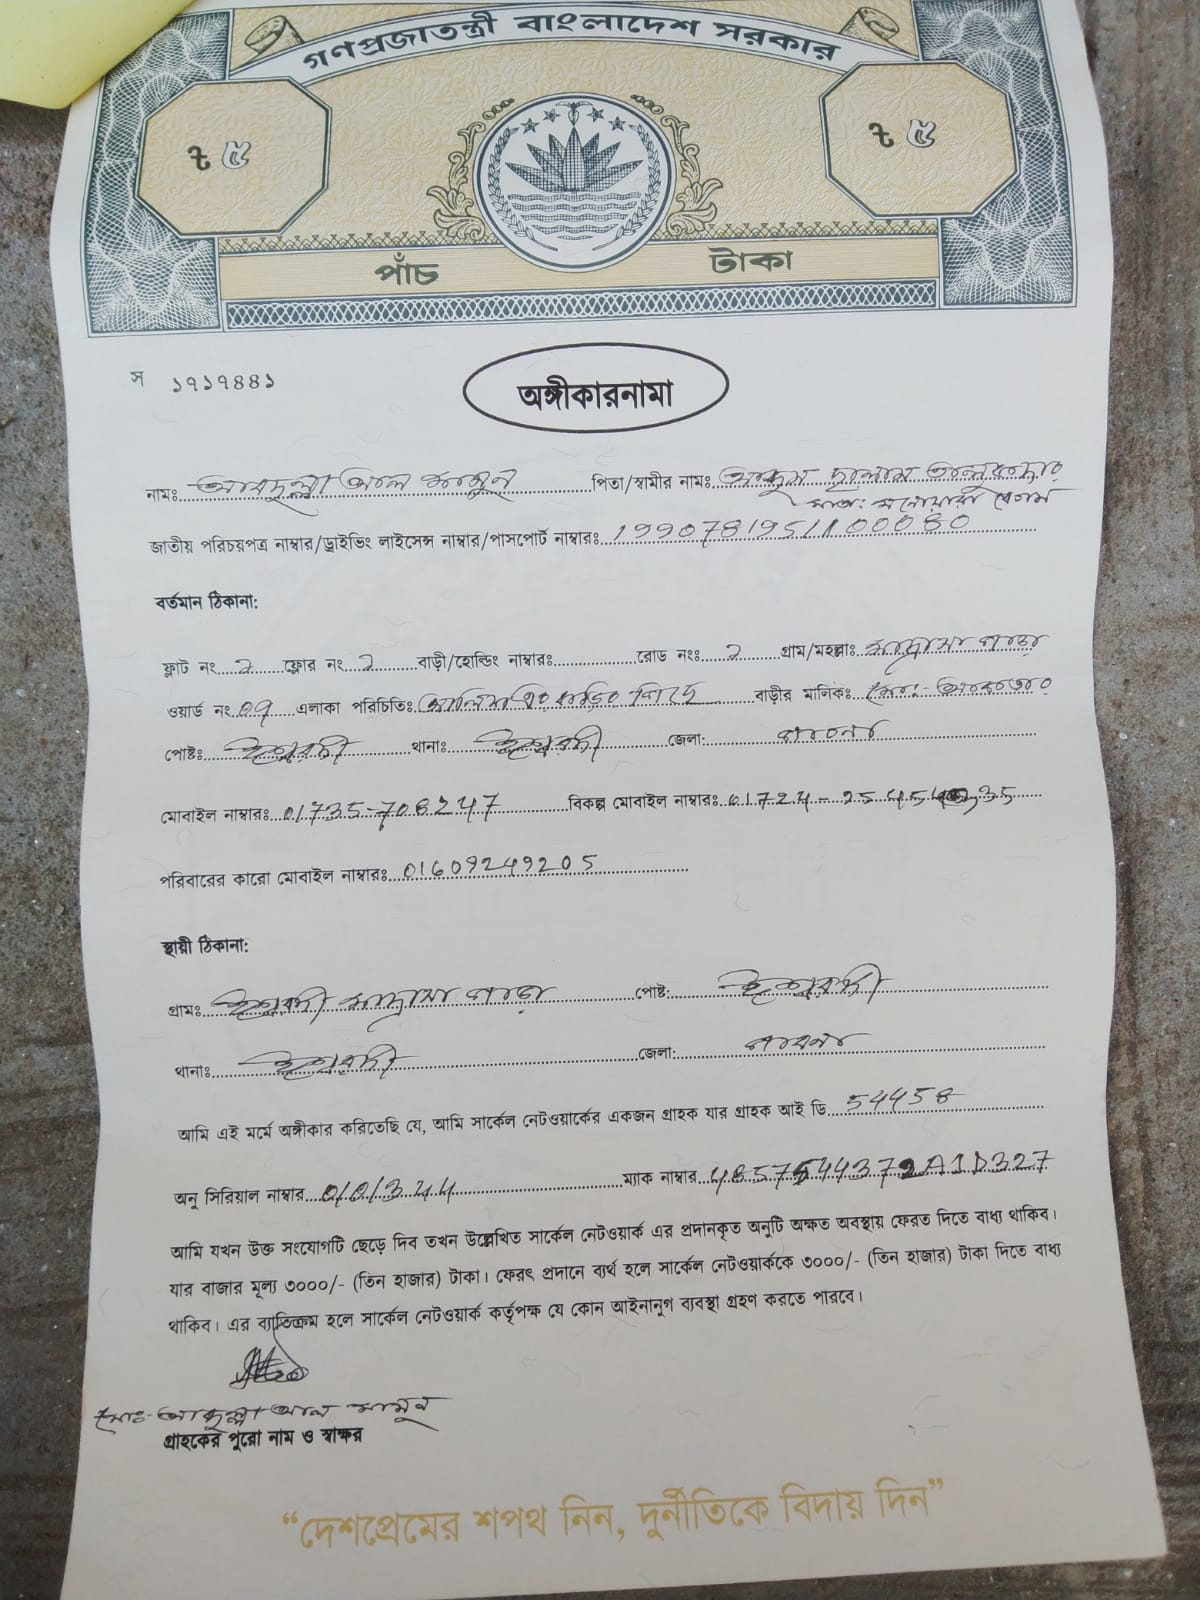 গণপ্রজাতন্ত্রী বাংলাদেশ সরকার
৳ ৫ ৳ ৫
পাঁচ টাকা
স ১৭১৭৪৪১
অঙ্গীকারনামা
নামঃ আবদুল্লা আল মামুন পিতা/স্বামীর নামঃ সালাম
মাতা: মনোয়ারা বেগম
জাতীয় পরিচয়পত্র নাম্বার/ড্রাইভিং লাইসেন্স নাম্বার/পাসপোর্ট নাম্বারঃ 19907819511000080
বর্তমান ঠিকানা:
ফ্লাট নং ২ ফ্লোর নং ২ বাড়ী/হোল্ডিং নাম্বারঃ রোড নংঃ ২ গ্রাম/মহল্লাঃ মাদ্রাসা পাড়া
ওয়ার্ড নং ০৭ এলাকা পরিচিতিঃ বাড়ীর মালিকঃ মোঃ
পোষ্টঃ ঈশ্বরদী থানাঃ ঈশ্বরদী জেলা: পাবনা
মোবাইল নাম্বারঃ 01735-708247 বিকল্প মোবাইল নাম্বারঃ
পরিবারের কারো মোবাইল নাম্বারঃ 01609249205
স্থায়ী ঠিকানা:
গ্রামঃ ঈশ্বরদী মাদ্রাসা পাড়া পোষ্ট: ঈশ্বরদী
থানাঃ ঈশ্বরদী জেলা: পাবনা
আমি এই মর্মে অঙ্গীকার করিতেছি যে, আমি সার্কেল নেটওয়ার্কের একজন গ্রাহক যার গ্রাহক আই ডি 54458
অনু সিরিয়াল নাম্বার ম্যাক নাম্বার
আমি যখন উক্ত সংযোগটি ছেড়ে দিব তখন উল্লেখিত সার্কেল নেটওয়ার্ক এর প্রদানকৃত অনুটি অক্ষত অবস্থায় ফেরত দিতে বাধ্য থাকিব।
যার বাজার মূল্য ৩০০০/- (তিন হাজার) টাকা। ফেরৎ প্রদানে ব্যর্থ হলে সার্কেল নেটওয়ার্ককে ৩০০০/- (তিন হাজার) টাকা দিতে বাধ্য
থাকিব। এর ব্যতিক্রম হলে সার্কেল নেটওয়ার্ক কর্তৃপক্ষ যে কোন আইনানুগ ব্যবস্থা গ্রহণ করতে পারবে।
মোঃ আব্দুল্লা আল মামুন
গ্রাহকের পুরো নাম ও স্বাক্ষর
“দেশপ্রেমের শপথ নিন, দুর্নীতিকে বিদায় দিন”